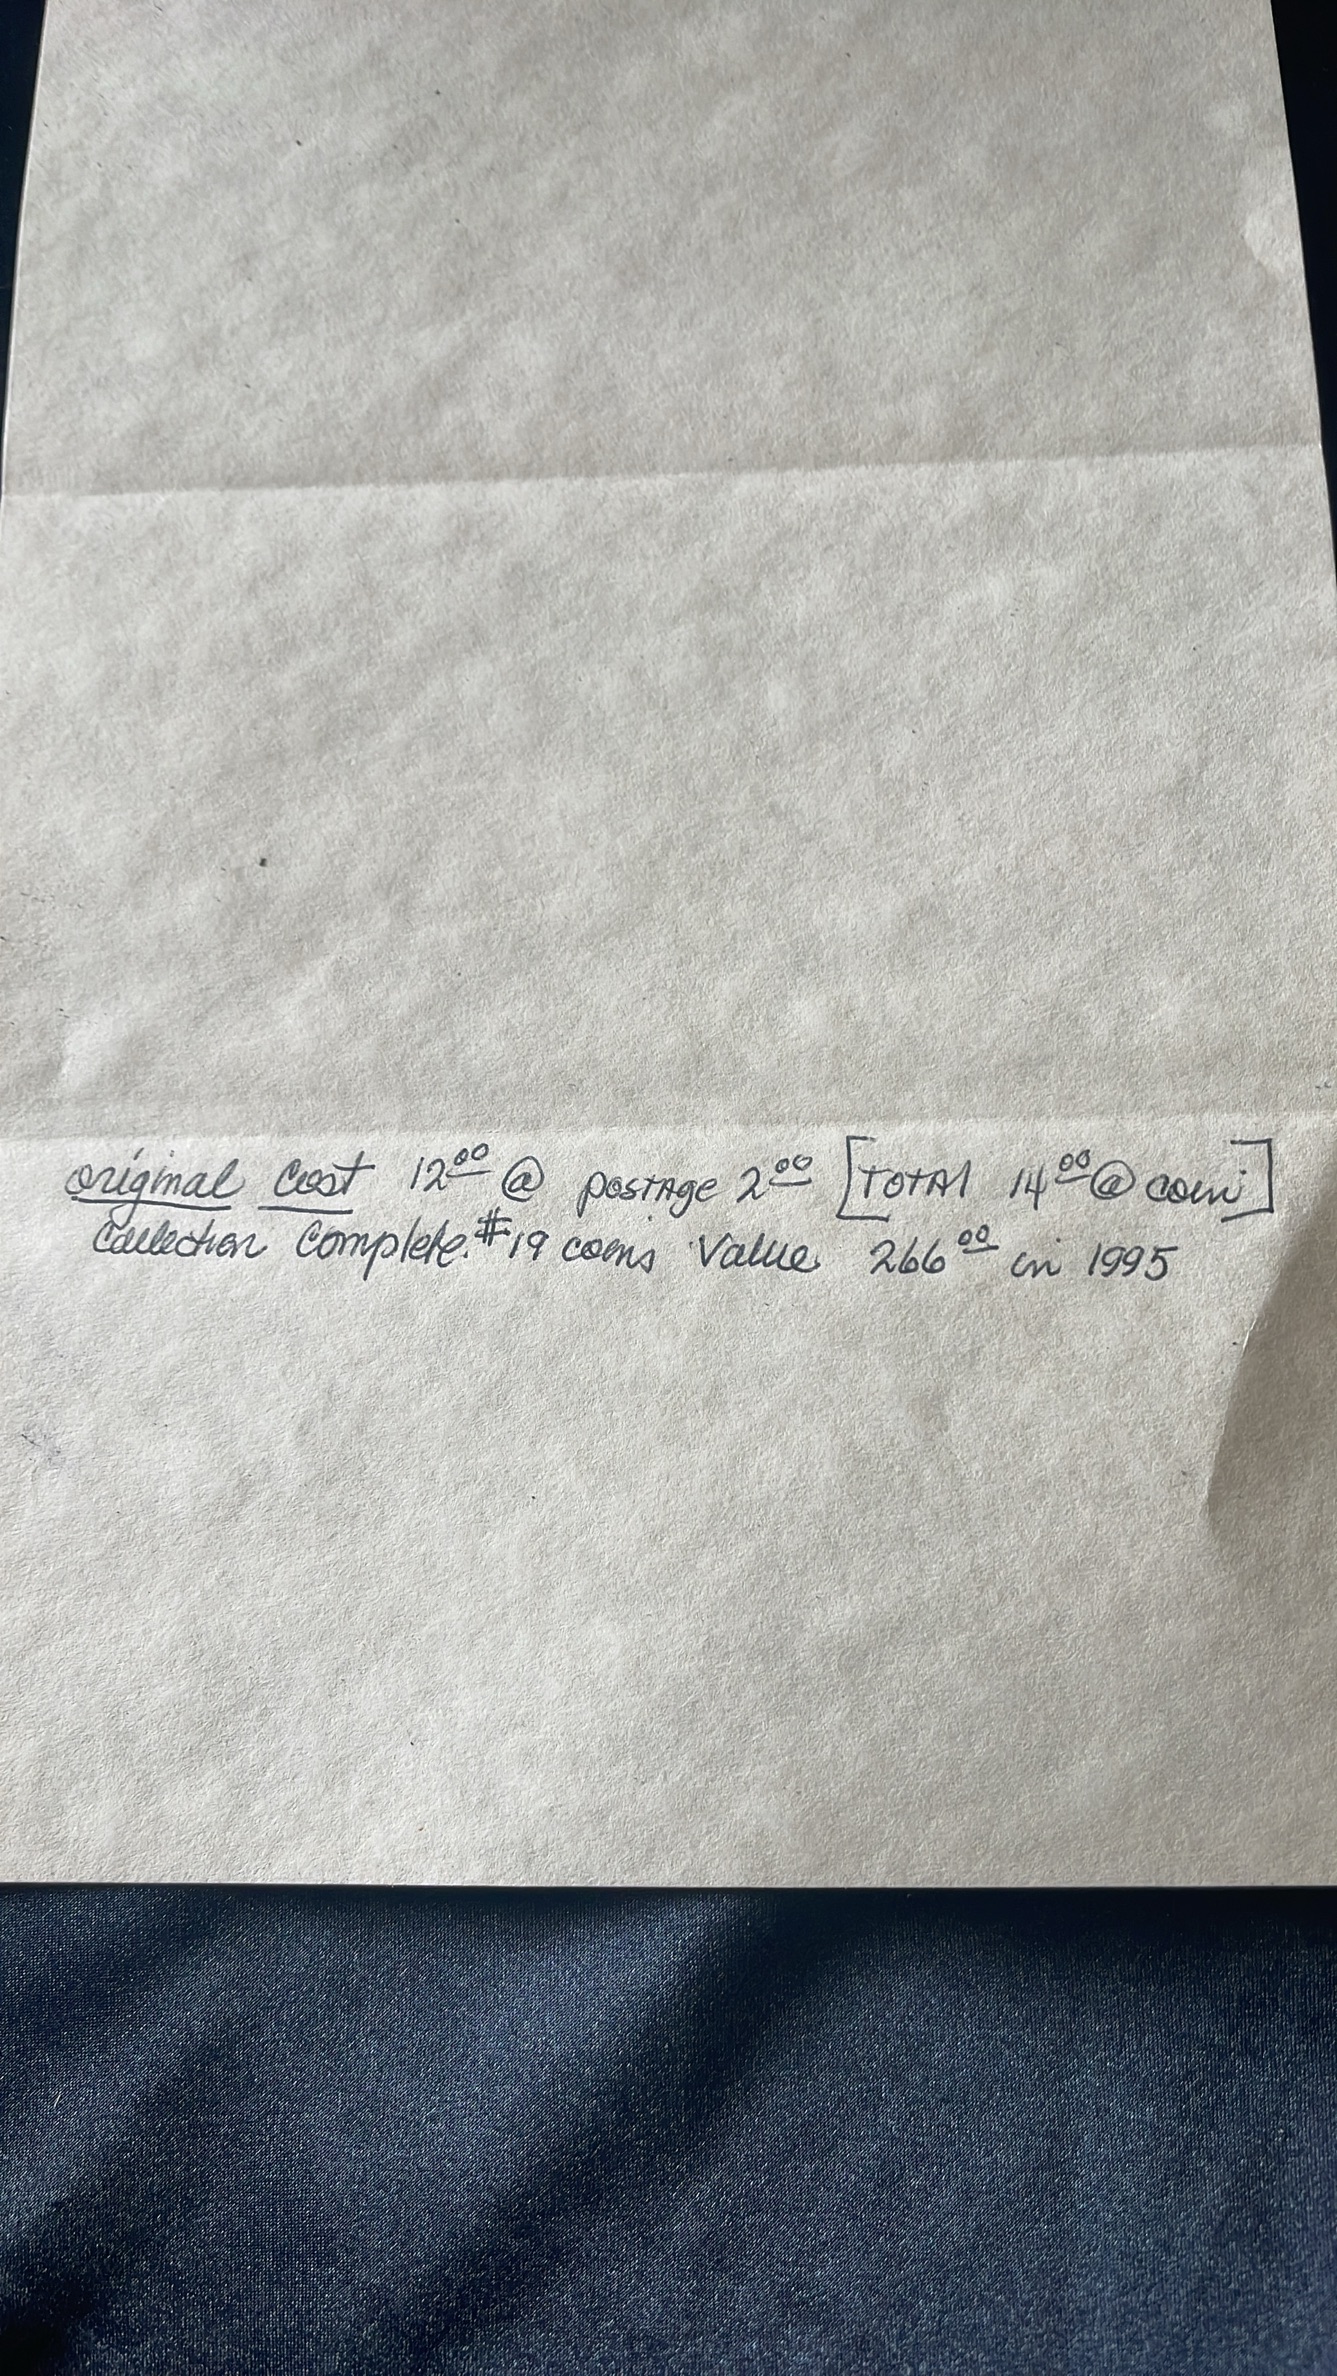 original cost 12.00 @ postage 2.00 [TOTAL 14.00 @ coin]
Collection Complete. #19 coins Value 266.00 in 1995